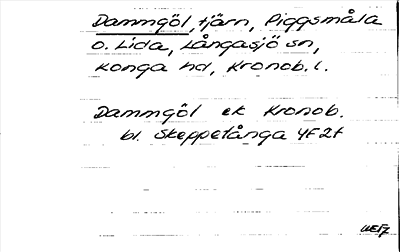 Dammgöl, tjärn, Piggsmåla
o. Lida, Långasjö sn,
Konga hd, Kronob. l.
Dammgöl ek Kronob.
bl. Skeppetånga 4F2f